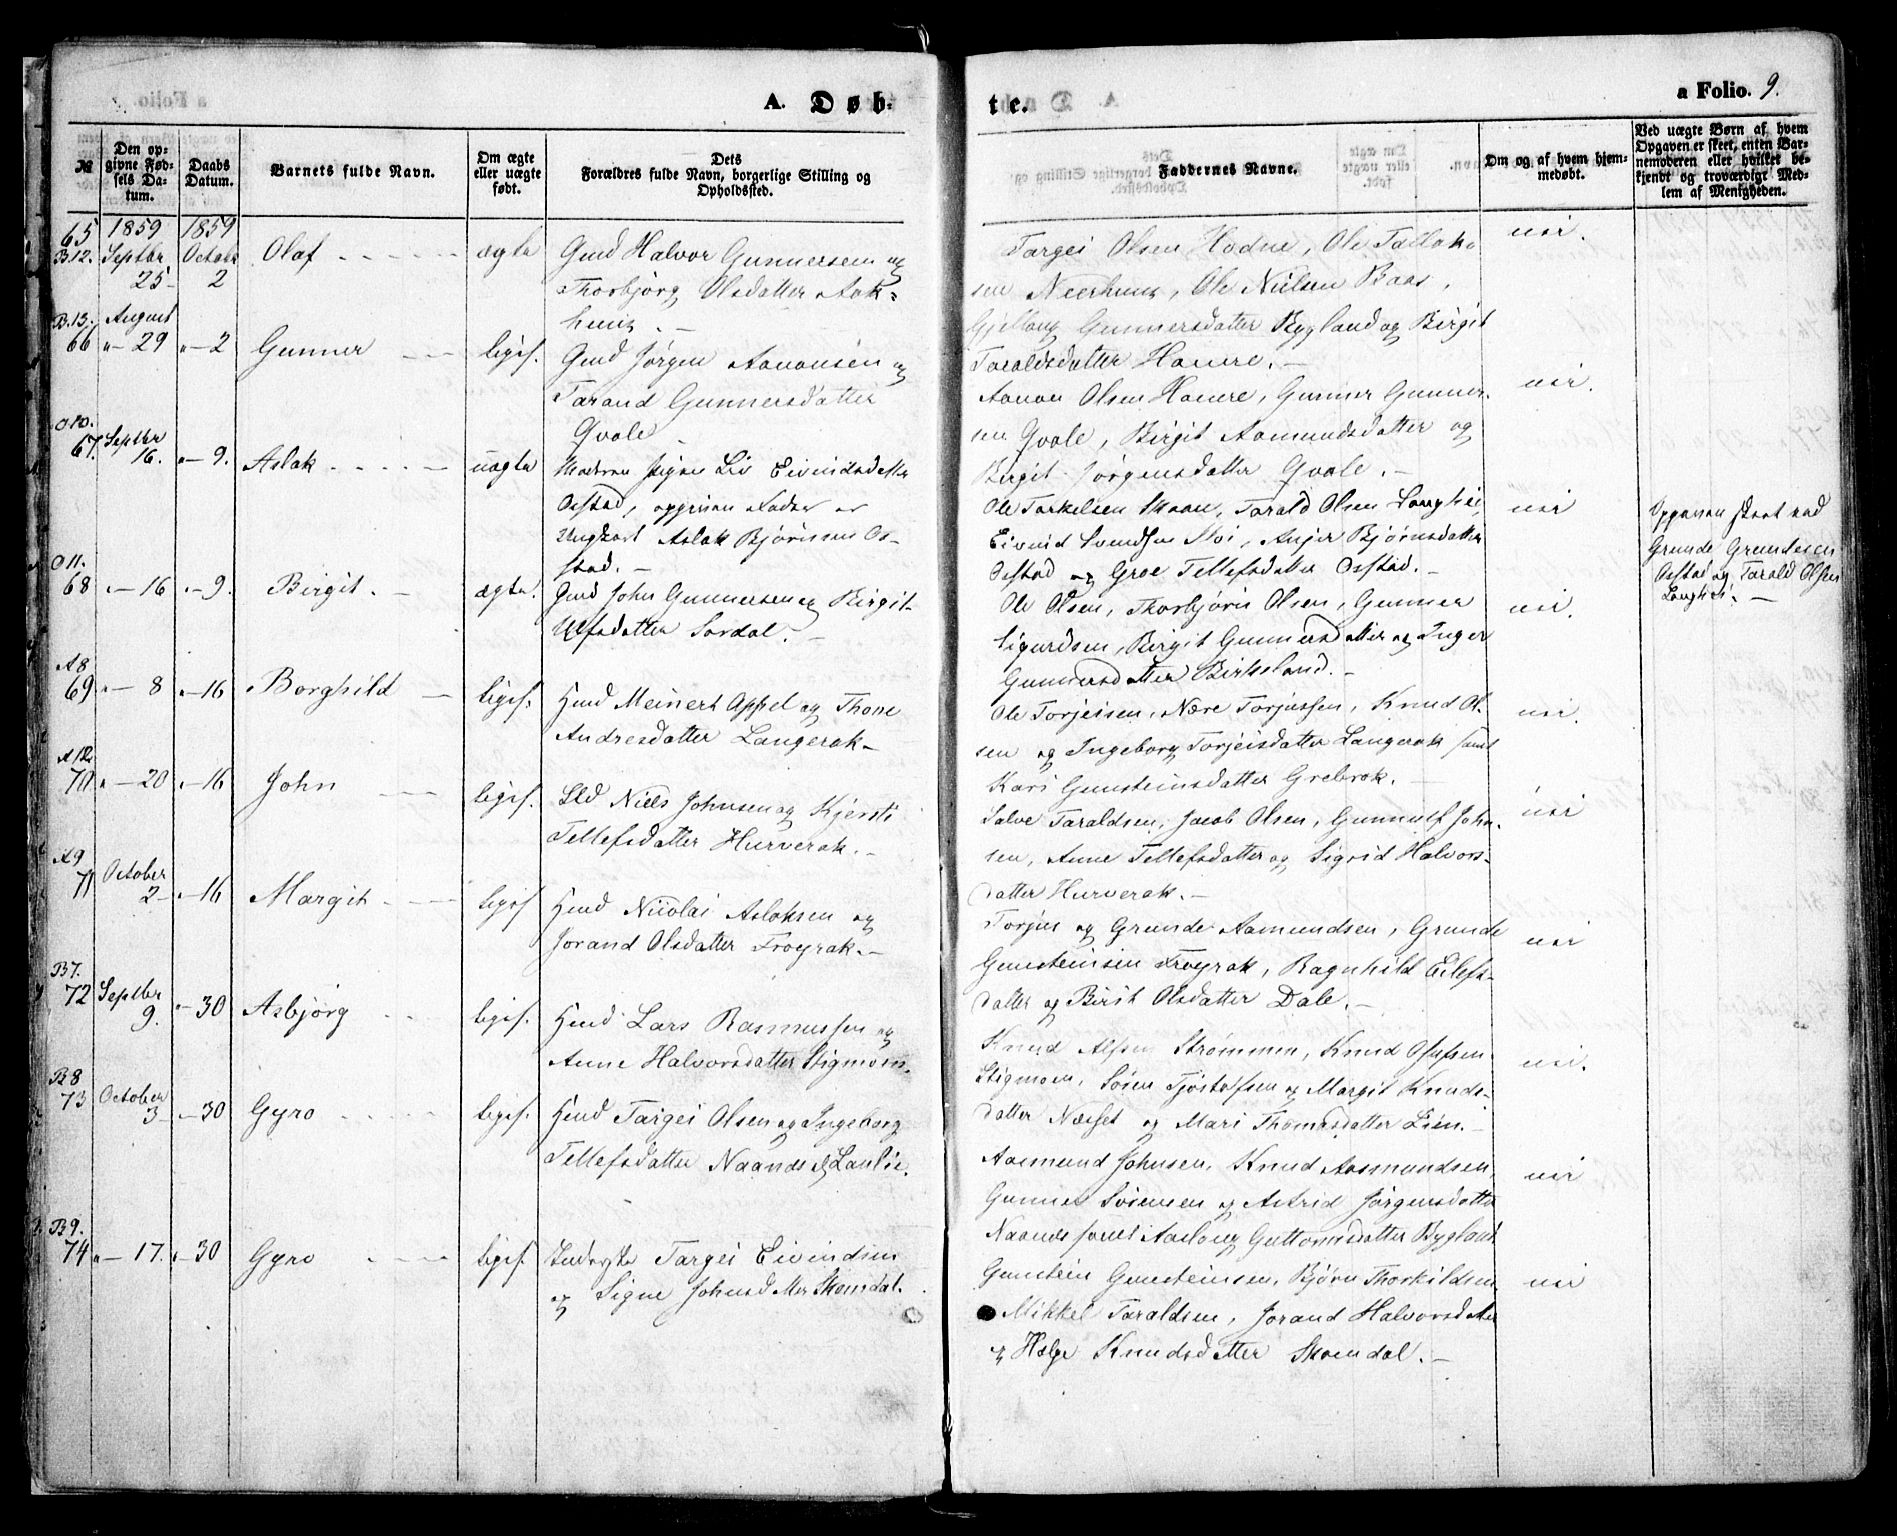 A. Døb-
te.
a Folio. 9.
№
Den op-
givne Fød-
sels Da-
tum.
Daabs
Datum.
Barnets fulde Navn.
Om ægte
eller uægte
født.
Dets
Forældres fulde Navn, borgerlige Stilling og
Opholdssted.
Faddernes Navne.
Om og af hvem hjem-
medøbt.
Ved uægte Børn af hvem
Opgaven er skeet, enten Bar-
nemoderen eller hvilket be-
kjendt og troværdigt Med-
lem af Menigheden.
65
B.12.
1859
Septbr
25
1859
Octobr
2
Olaf
ægte
Gmd Halvor Gunnersen og
Thorbjørg Olsdatter Aak-
huus.
Targei Olsen Hodne, Ole Tallak-
sen, Ole Nielsen Baas,
Gjellaug Gunnersdatter Bygland og Birgit
Taraldsdatter Haure.
nei.
B.13.
66
August
"-29
"-2
Gunner
liges.
Gmd Jørgen Aanonsen og
Tarand Gunnersdatter
Qvale
Aanon Olsen Haure, Gunner Gunner-
sen Qvale, Birgit Aamundsdatter og
Birgit Jørgensdatter Qvale.
nei.
O10.
67.
Septbr
16.
"-9.
Aslak
uægte
Moderen Pigen Liv Eivindsdatter
Osstad, opgiven Fader er
Ungkarl Aslak Bjørnsen Os-
stad.
Ole Torkelsen, Tarald Olsen Langhei,
Eivind Svendsen Moi, Anjer Bjørnsdatter
Osstad og Groe Tellefsdatter Osstad.
nei
Opgaven skeet ved
Grunde Grundesen
Osstad og Tarald Olsen
Langhei.
O11.
68
"-16
"-9.
Birgit.
ægte.
Gmd John Gunnersen og Birgit
Ulfsdatter Sordal.
Ole Olsen, Thorbjørn Olsen, Gunner
Sigurdsen, Birgit Gunnersdatter og Inger
Gunnersdatter Birkeland.
nei.
A8
69
"-8
"-16
Borghild
liges.
Hmd Meinert Appel og Thone
Andresdatter Langerak
Ole Torjeisen, Nære Torjussen, Knud Ol-
sen og Ingeborg Torjeisdatter Langerak samt
Kari Gunsteinsdatter Grebrok.
nei.
A12
70
"-20
"-16
John
ligis.
Sld Niels Johnsen og Kjersti
Tellefsdatter Hurverak.
Salve Taraldsen, Jacob Olsen, Gunnulf John-
sen, Anne Tellefsdatter og Sigrid Halvors-
datter Hurverak.
nei
A9
71
October
2
"-16
Margit
ligis
Hmd Nicolai Aslaksen og
Jorand Olsdatter Frøyrak.
Torjus og Grunde Aamundsen, Grunde
Gunsteinsen Frøyrak, Ragnhild Eilefs-
datter og Birit Olsdatter Dale.
nei
B7.
72
Septbr
9.
"-30
Asbjørg
ligis.
Hmd Lars Rasmussen og
Anne Halvorsdatter Stigmoen.
Knud Alfsen Strømmen, Knud Olufsen
Stigmoen, Søren Tjøstolfsen og Margit Knuds-
datter Næsset og Mari Thomasdatter Lien.
nei.
B8
73
October
3
"-30
Gyro
ligis.
Hmd Targei Olsen og Ingeborg
Tellefsdatter Naandset Laulie.
Aasmund Johnsen, Knud Aasmundsen,
Gunner Sørensen og Astrid Jørgensdatter
Naands samt Aaslaug Guttormsdatter Bygland
nei
B9.
74
"-17.
"-30
Gyro
ligis.
Inderste Targei Eivindsen
og Signe Johnsdatter Skomdal.
Gunstein Gunsteinsen, Bjørn Thorkildsen
Mikkel Taraldsen, Jorand Halvorsdatter
og Helge Knudsdatter Skomdal.
nei